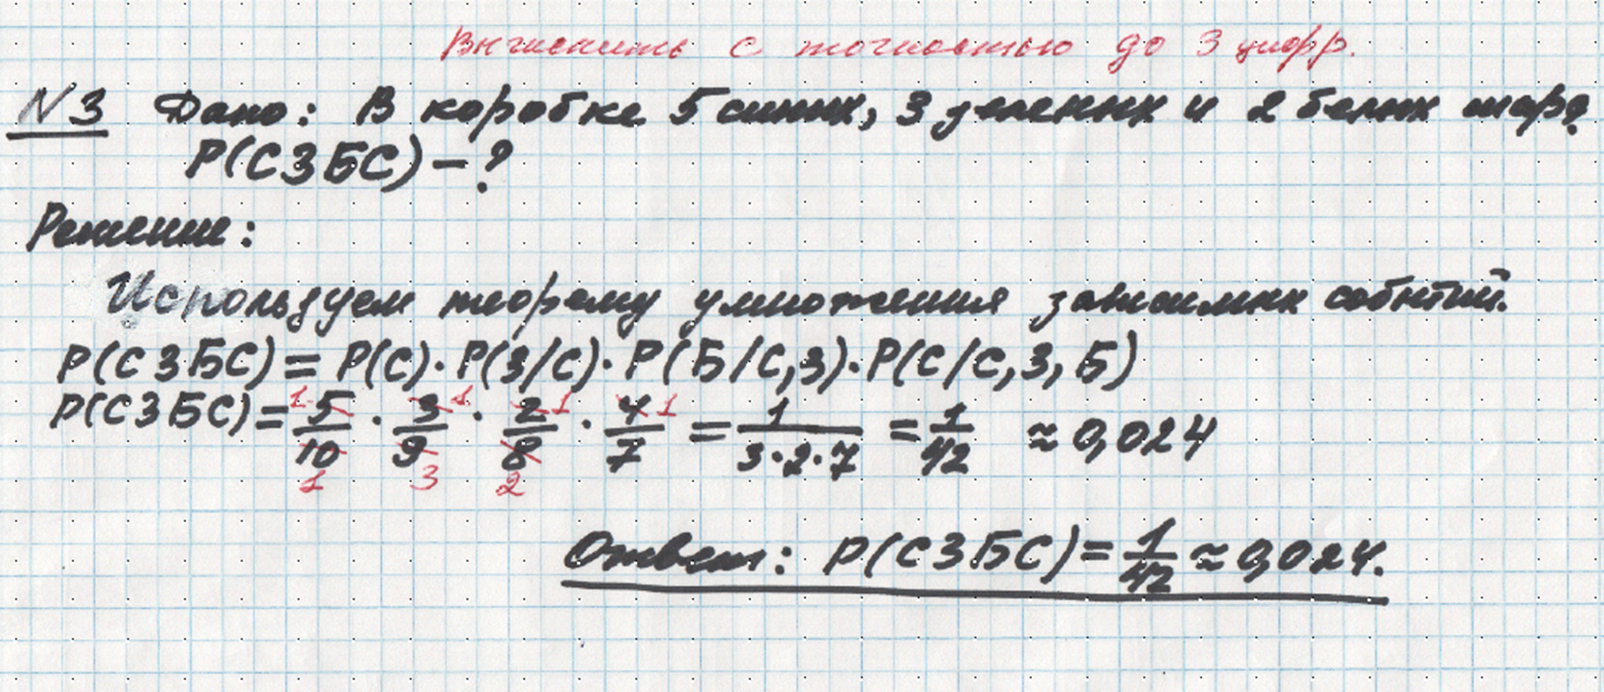 Вычислить с точностью до 3 цифр.
N3 Дано: В коробке 5 синих, 3 зеленых и 2 белых шара
P(СЗБС) - ?
Решение:
Используем теорему умножения зависимых событий.
P(СЗБС) = P(С) · P(З/С) · P(Б/С,З) · P(С/С,З,Б)
P(СЗБС) = 5/10 · 3/9 · 2/8 · 4/7 = 1/(3·2·7) = 1/42 ≈ 0,024
1 1 1 1
1 3 2
Ответ: P(СЗБС) = 1/42 ≈ 0,024.